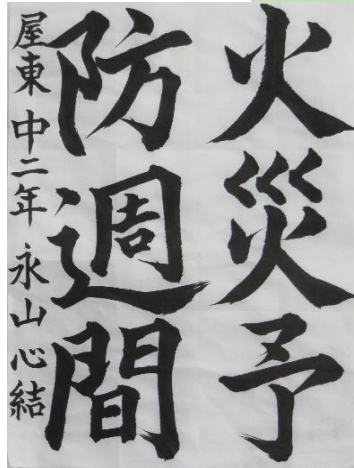 火災予
防週間
屋東 中二年 永山 心結